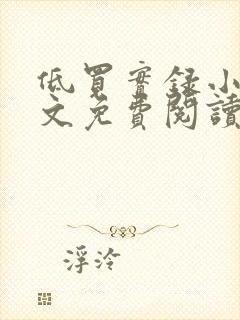 低買實錄小
文免費閱讀
浮泠